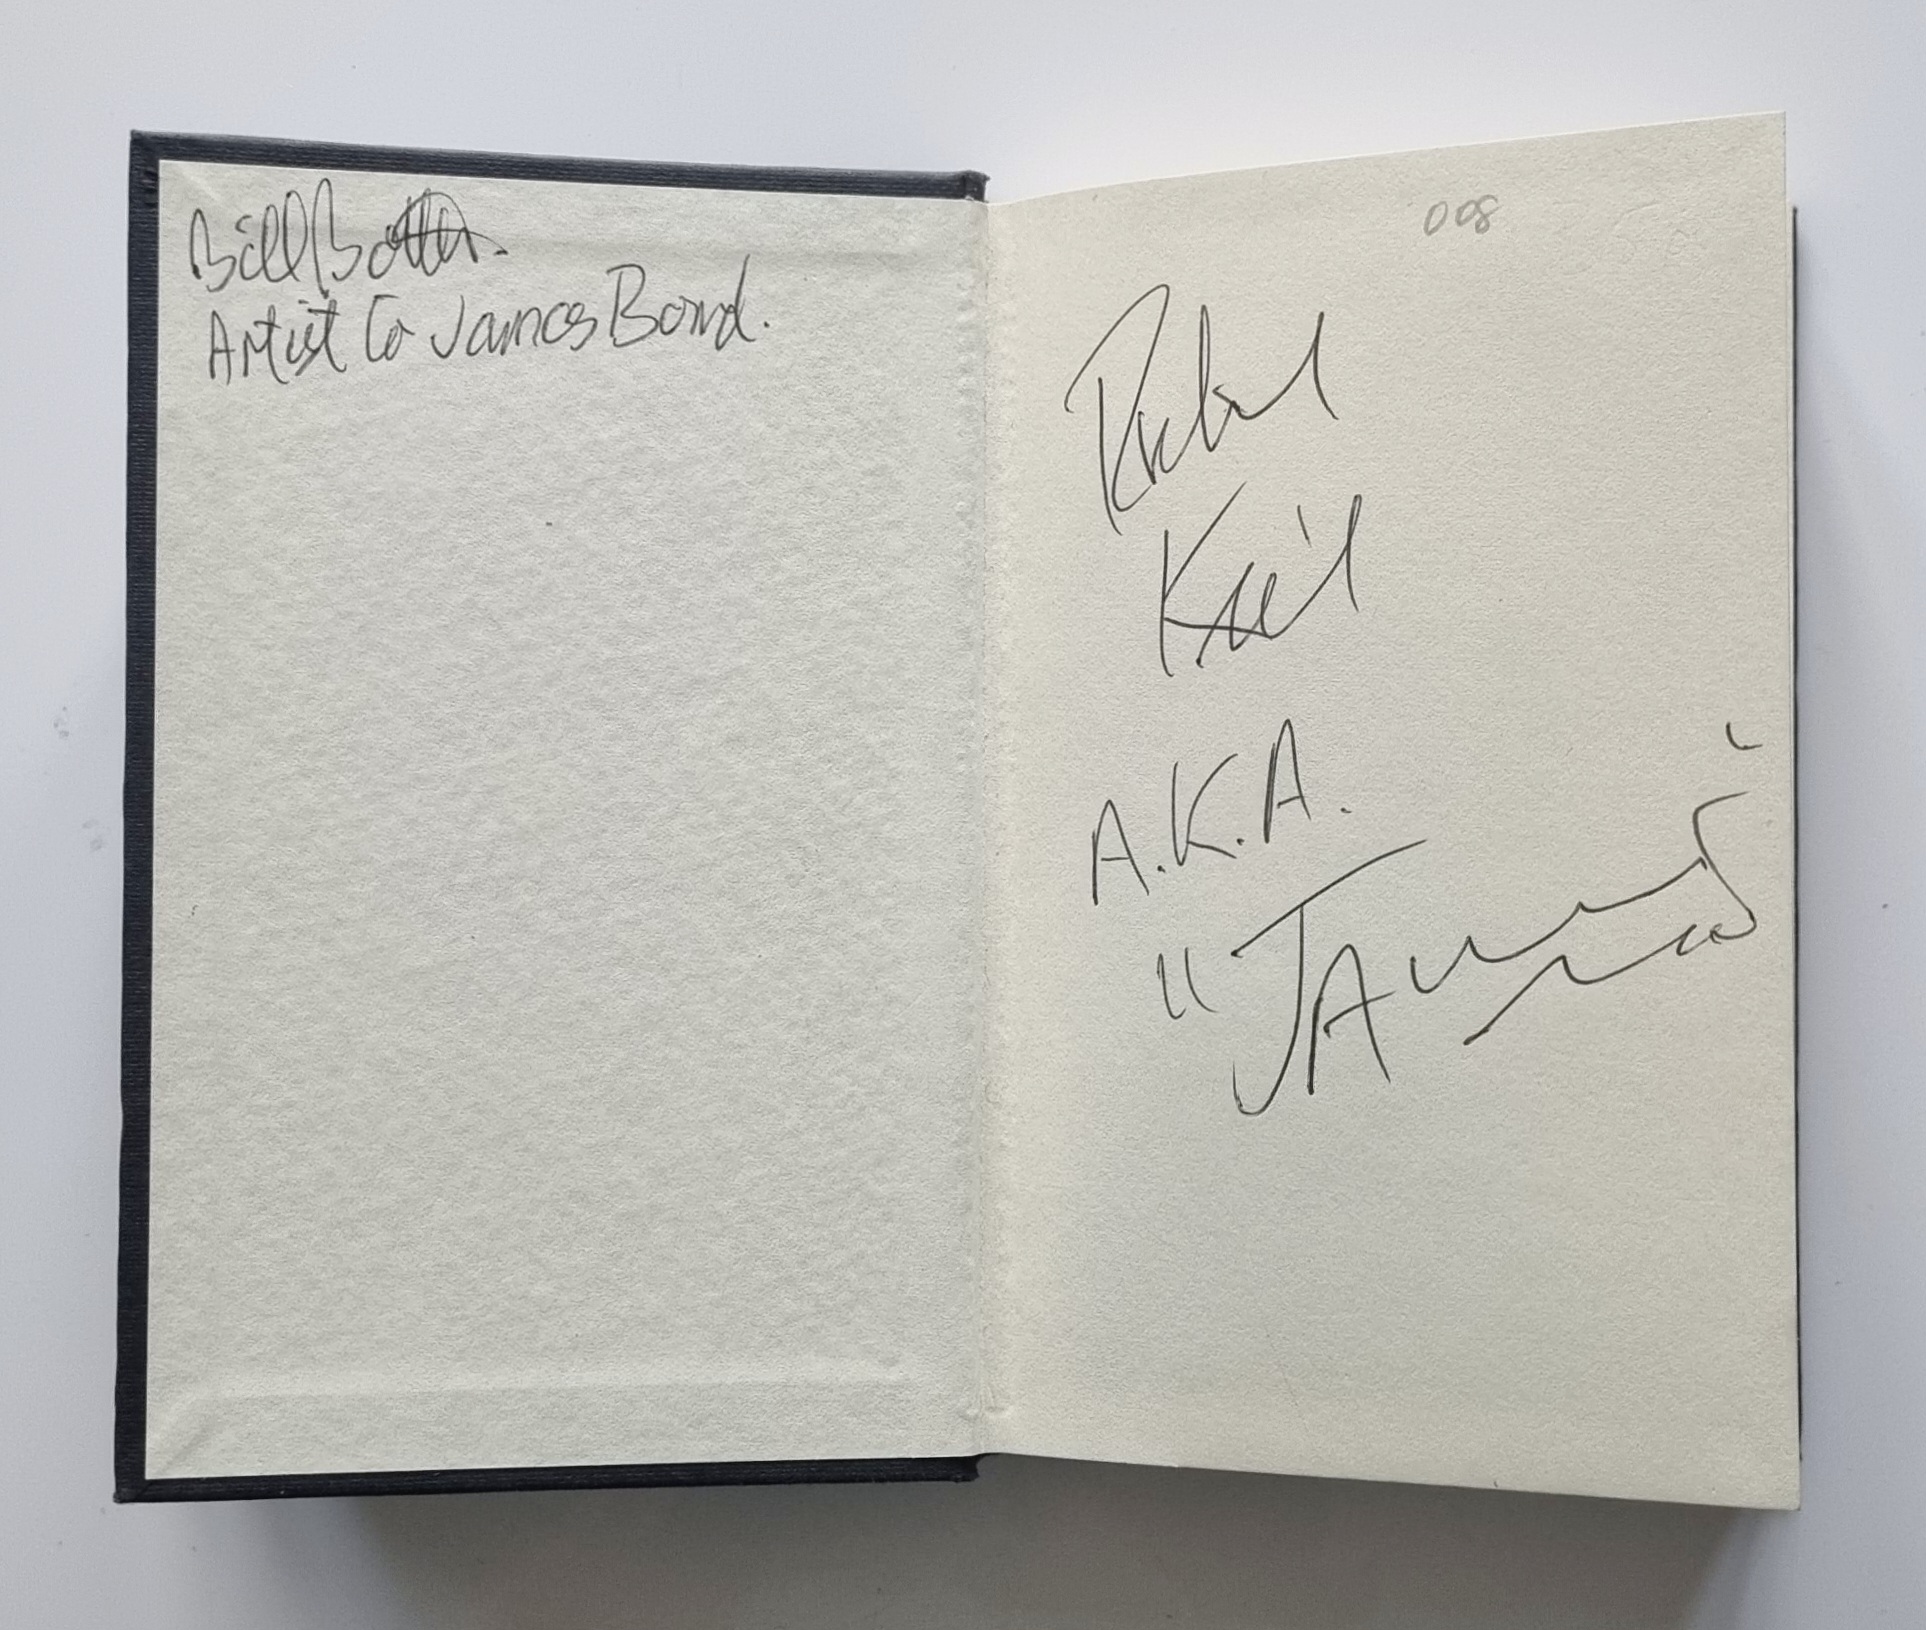 Bill Botten.
Artist to James Bond.
008
Richard
Kiel
A.K.A.
"JAWS"